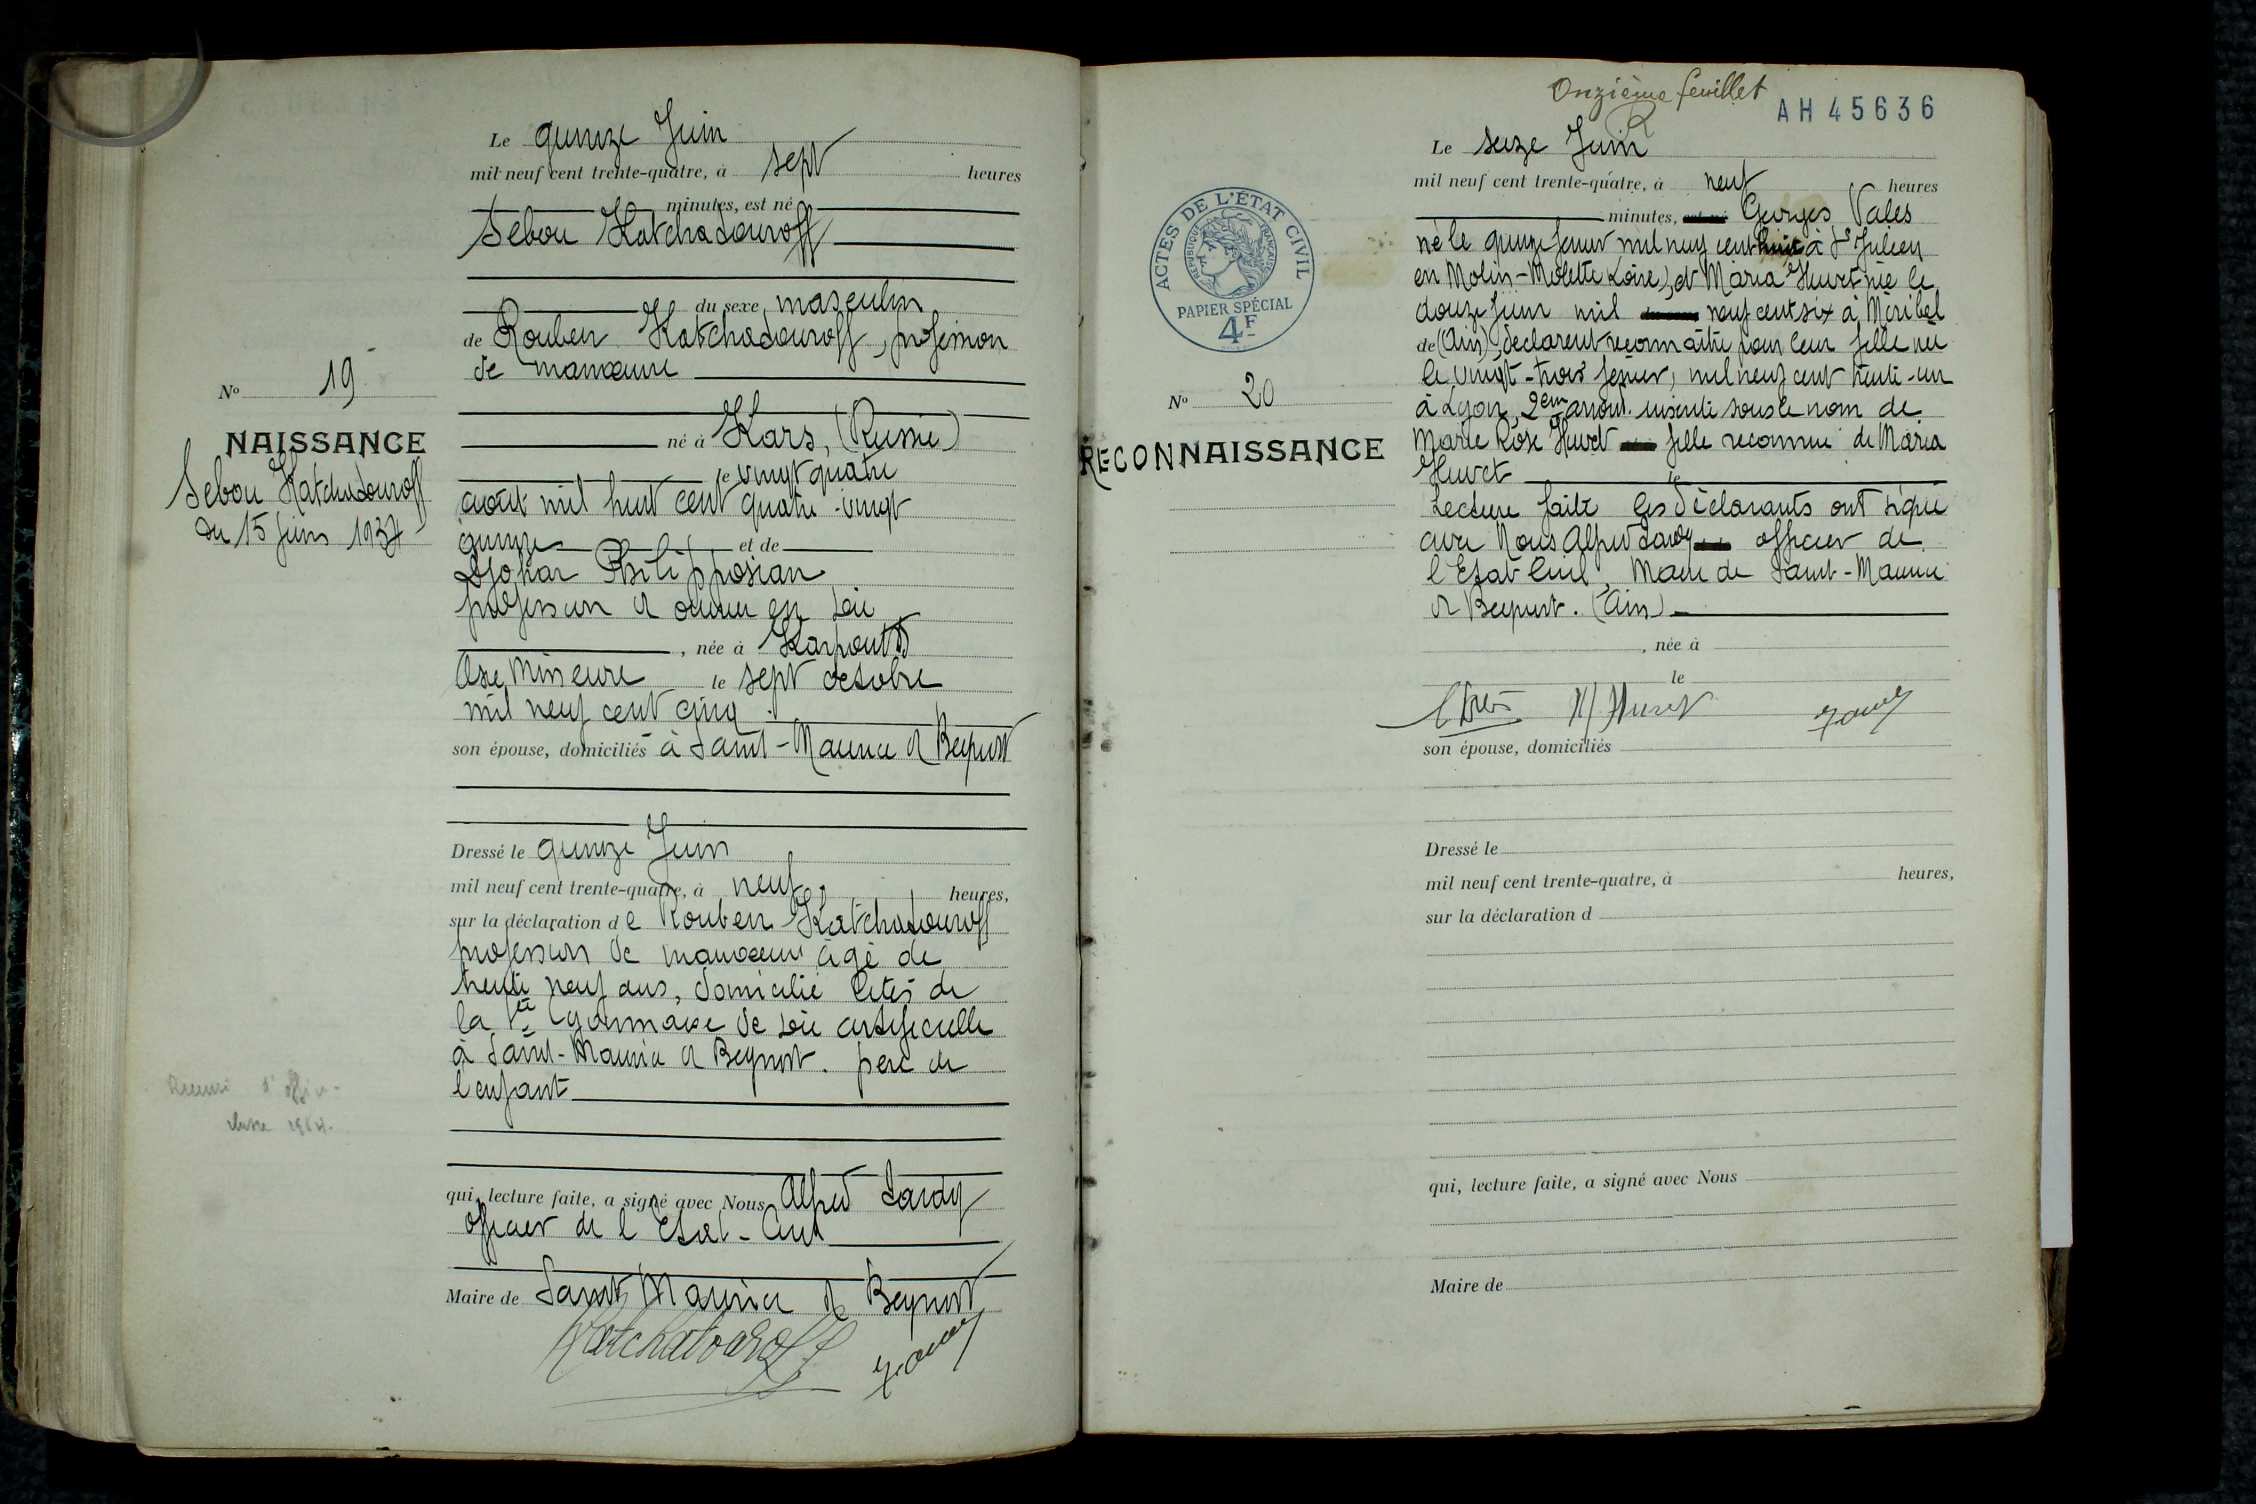 Le quinze Juin
mil neuf cent trente-quatre, à sept heures
minutes, est né
Sebou Katchadouroff
du sexe masculin
de Rouben Katchadouroff, profession
de manœuvre
né à Kars, (Russie)
le vingt quatre
août mil huit cent quatre-vingt
quinze et de
Djohar Philipposian
profession d ouvrier en soie
, née à Karpout
Asie Mineure le sept octobre
mil neuf cent cinq
son épouse, domiciliés à Saint-Maurice d Beynost
Dressé le quinze Juin
mil neuf cent trente-quatre, à neuf heures,
sur la déclaration de Rouben Katchadouroff
profession de manœuvre âgé de
trente neuf ans, domicilié Cités de
la Sté Lyonnaise de soie artificielle
à Saint-Maurice d Beynost. père de
l'enfant
qui, lecture faite, a signé avec Nous Alfred Sardy
officier de l'Etat-Civil
Maire de Saint Maurice d Beynost
Nº 19
NAISSANCE
Sebou Katchadouroff
du 15 Juin 1934
classe 1954.
Onzième feuillet
AH 45636
ACTES DE L'ÉTAT CIVIL
RÉPUBLIQUE FRANÇAISE
PAPIER SPÉCIAL
4F
Nº 20
RECONNAISSANCE
Le seize Juin
mil neuf cent trente-quatre, à neuf heures
minutes, Georges Valès
né le quinze février mil neuf cent huit à St Julien
en Molin-Molette (Loire), et Maria Huvet née le
douze Juin mil neuf cent six à Miribel
de (Ain), déclarent reconnaître pour leur fille née
le vingt-trois février, mil neuf cent trente-un
à Lyon, 2em arront. inscrite sous le nom de
Marie Rose Huvet fille reconnue de Maria
Huvet le
Lecture faite les déclarants ont signé
avec Nous Alfred Sardy officier de
l'Etat Civil, Maire de Saint-Maurice
d Beynost. (Ain)
, née à
le
M Huvet
son épouse, domiciliés
Dressé le
mil neuf cent trente-quatre, à heures,
sur la déclaration d
qui, lecture faite, a signé avec Nous
Maire de